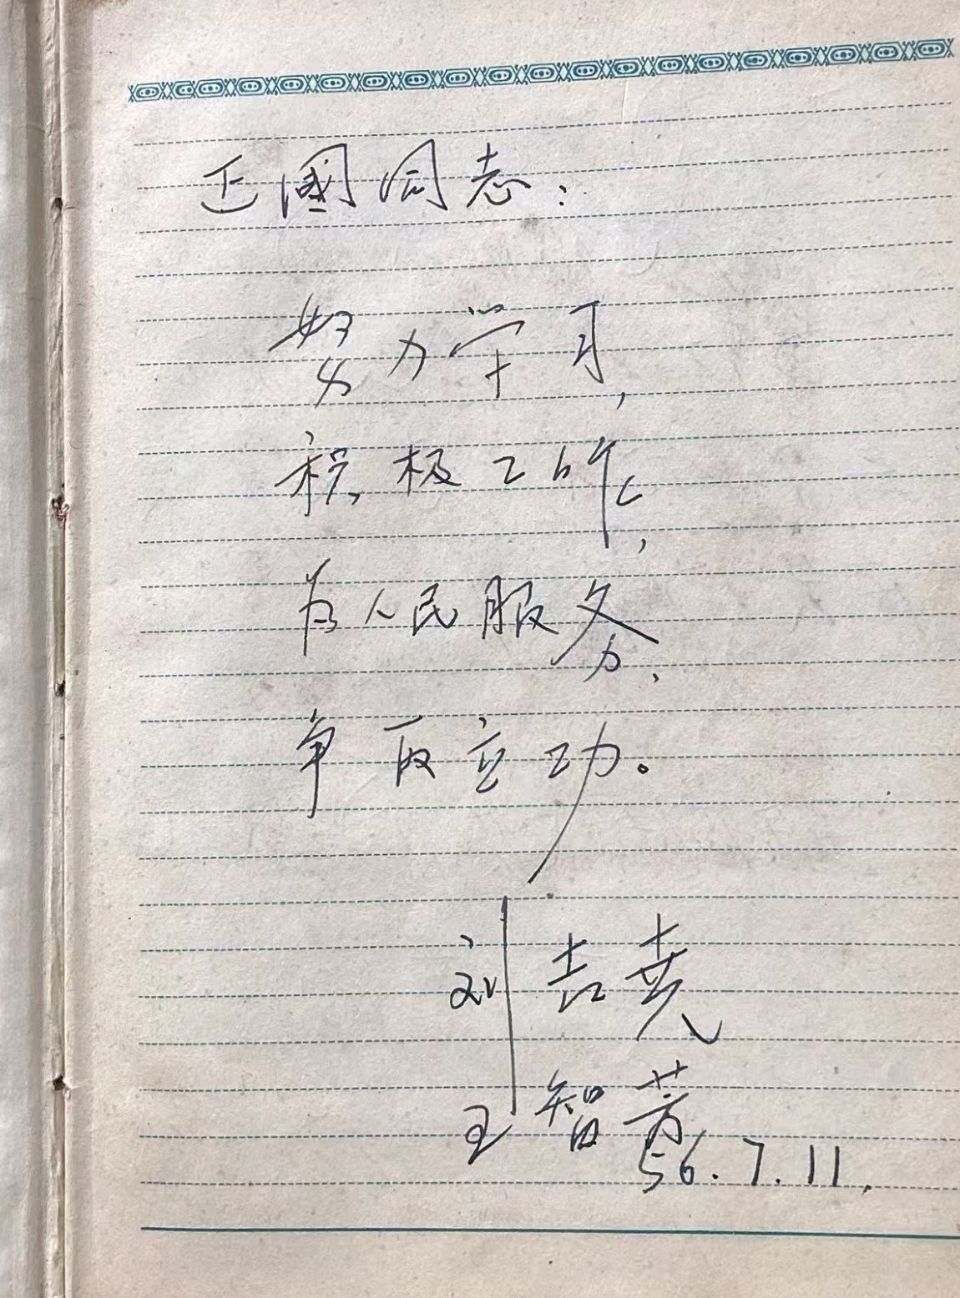 正國同志：
努力学习，
积极工作，
为人民服务，
争取立功。
刘吉尧
王智芳
56.7.11.